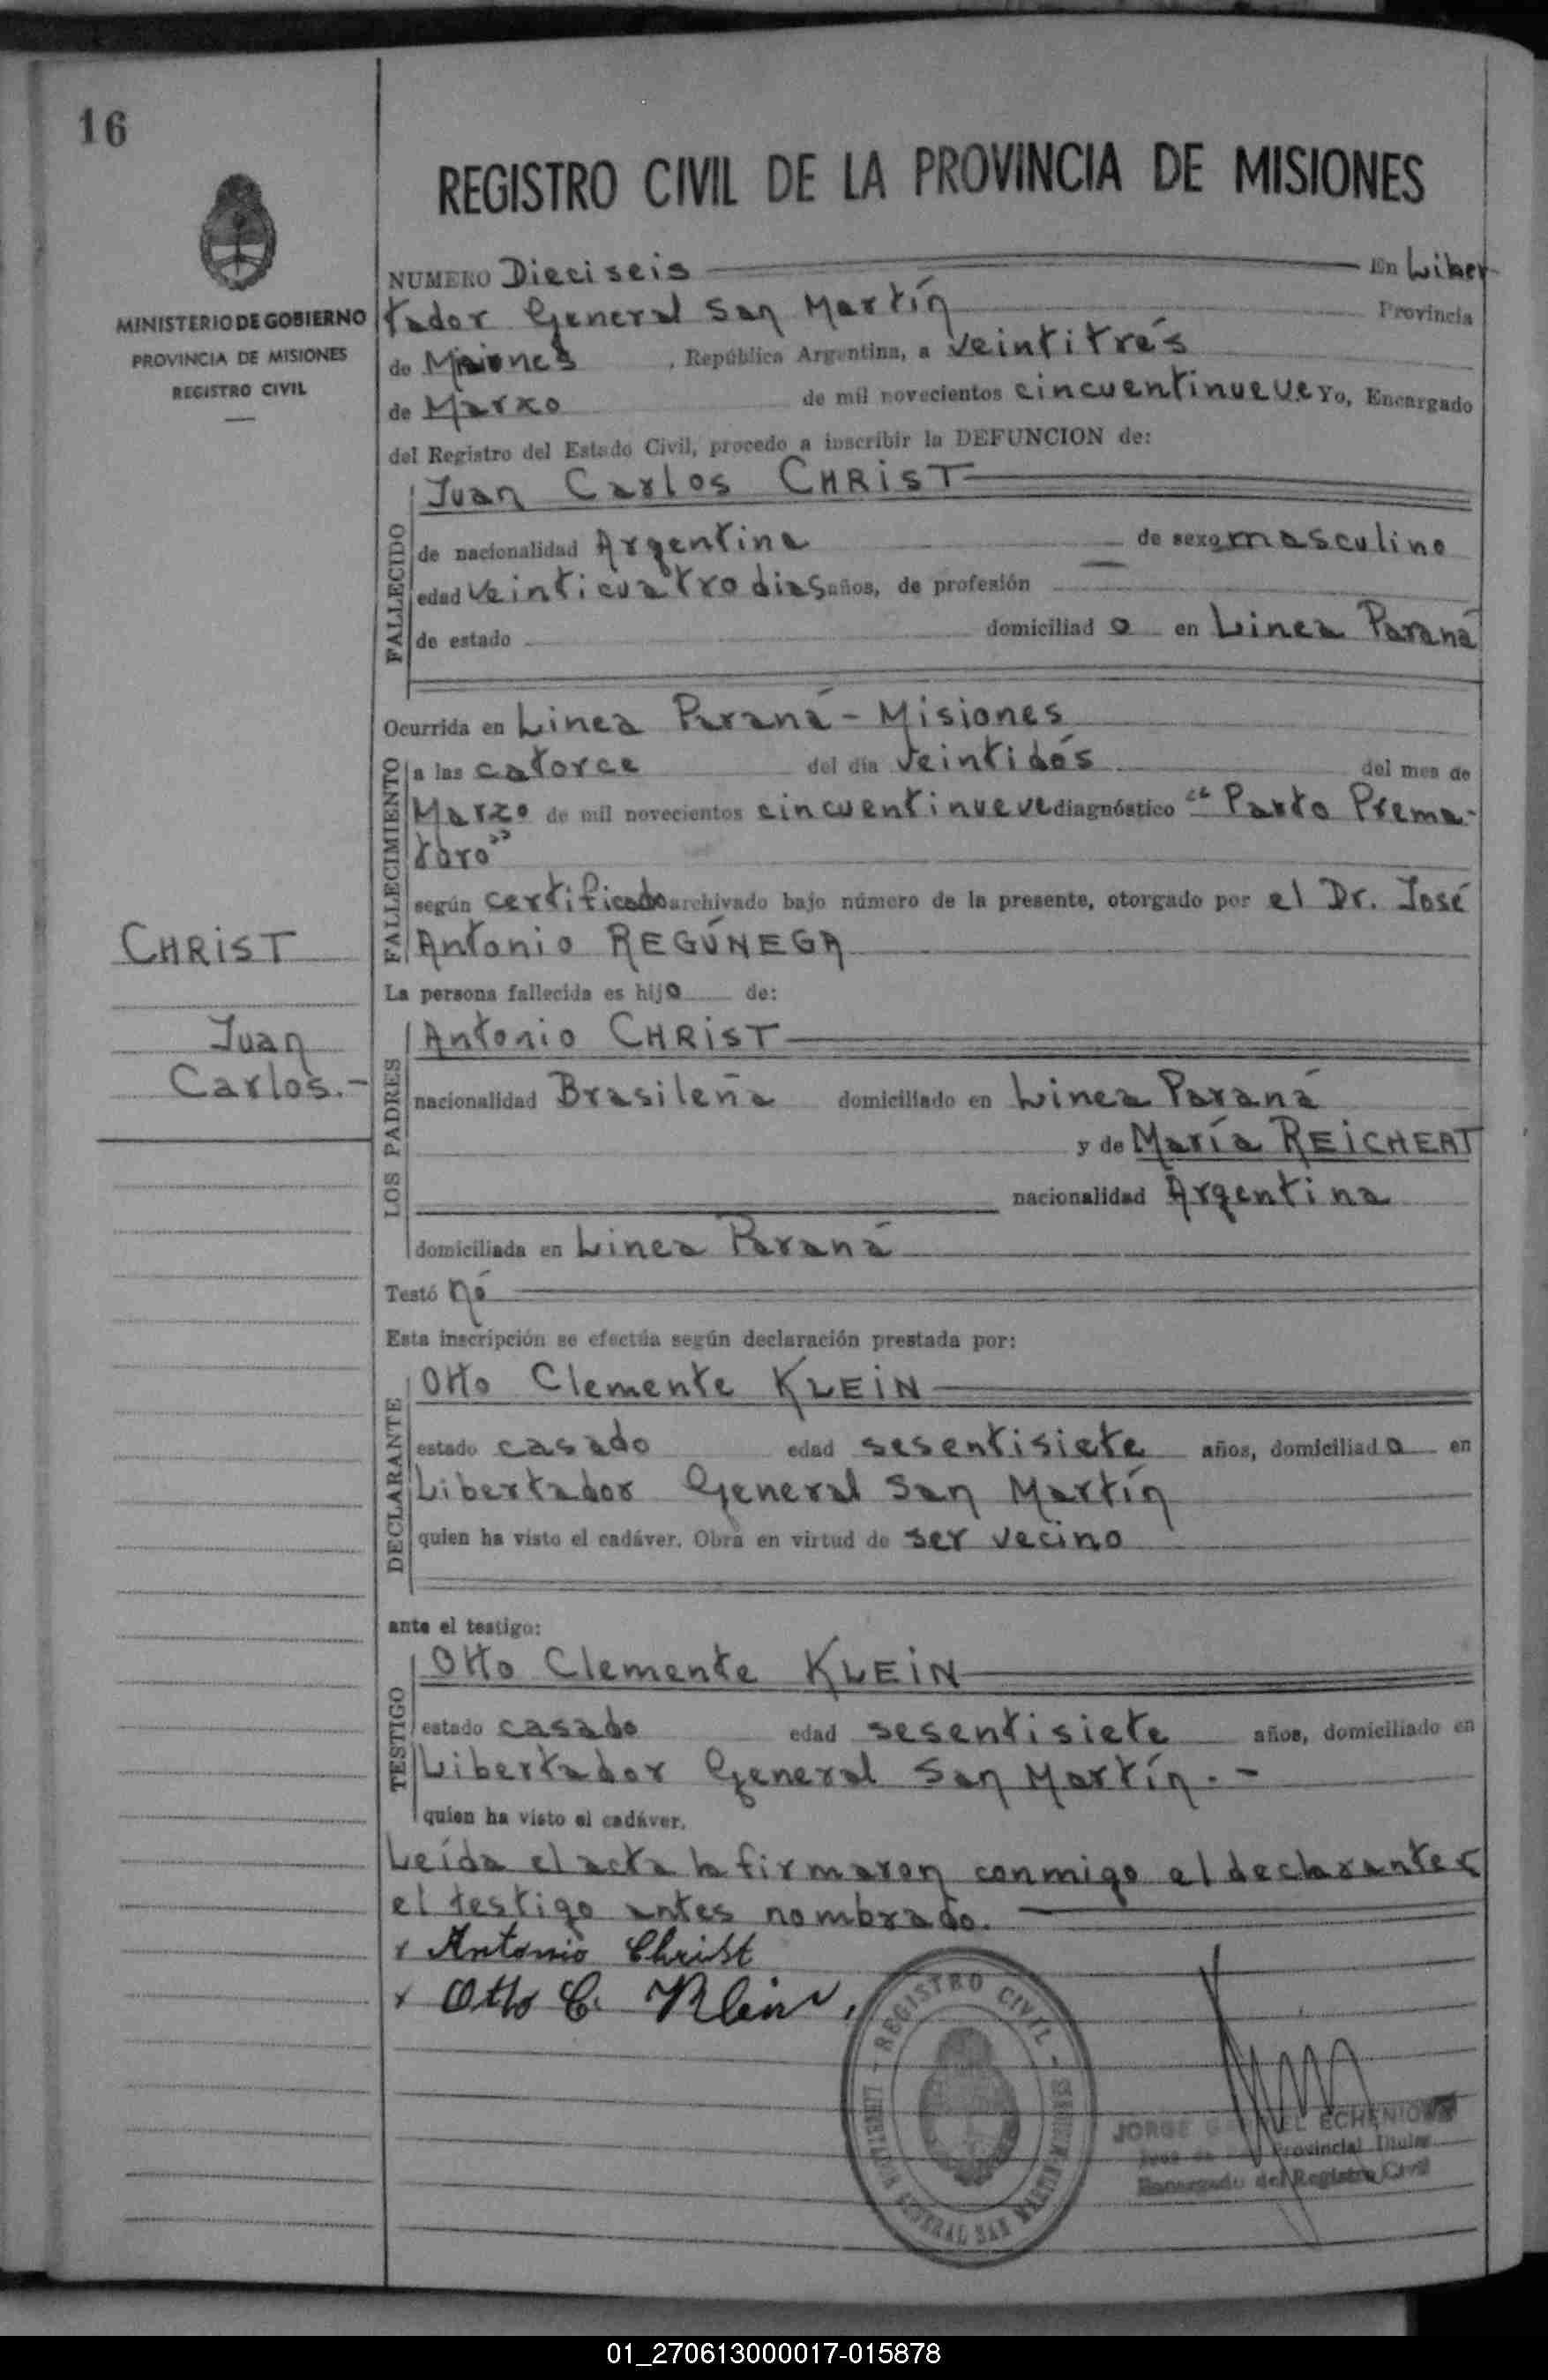 16
REGISTRO CIVIL DE LA PROVINCIA DE MISIONES
MINISTERIO DE GOBIERNO
PROVINCIA DE MISIONES
REGISTRO CIVIL
NUMERO Dieciseis En Liber-
tador General San Martín Provincia
de Misiones, República Argentina, a veintitrés
de Marzo de mil novecientos cincuentinueve Yo, Encargado
del Registro del Estado Civil, procedo a inscribir la DEFUNCION de:
FALLECIDO
Juan Carlos CHRIST
de nacionalidad Argentina de sexo masculino
edad veinticuatro dias años, de profesión
de estado domiciliad o en Linea Paraná
Ocurrida en Linea Paraná - Misiones
FALLECIMIENTO
a las catorce del día veintidós del mes de
Marzo de mil novecientos cincuentinueve diagnóstico "Parto Prema-
turo"
según certificado archivado bajo número de la presente, otorgado por el Dr. José
Antonio REGÚNEGA
CHRIST
Juan
Carlos.-
La persona fallecida es hijo de:
LOS PADRES
Antonio CHRIST
nacionalidad Brasileña domiciliado en Linea Paraná
y de María REICHERT
nacionalidad Argentina
domiciliada en Linea Paraná
Testó nó
Esta inscripción se efectúa según declaración prestada por:
DECLARANTE
Otto Clemente KLEIN
estado casado edad sesentisiete años, domiciliad o en
Libertador General San Martín
quien ha visto el cadáver. Obra en virtud de ser vecino
ante el testigo:
TESTIGO
Otto Clemente KLEIN
estado casado edad sesentisiete años, domiciliado en
Libertador General San Martín.-
quien ha visto el cadáver.
Leída el acta la firmaron conmigo el declarante y
el testigo antes nombrado.
x Antonio Christ
x Otto C. Klein
REGISTRO CIVIL - LIBERTADOR GENERAL SAN MARTIN - MISIONES
JORGE
Provincial Titular
Encargado del Registro Civil
01_270613000017-015878